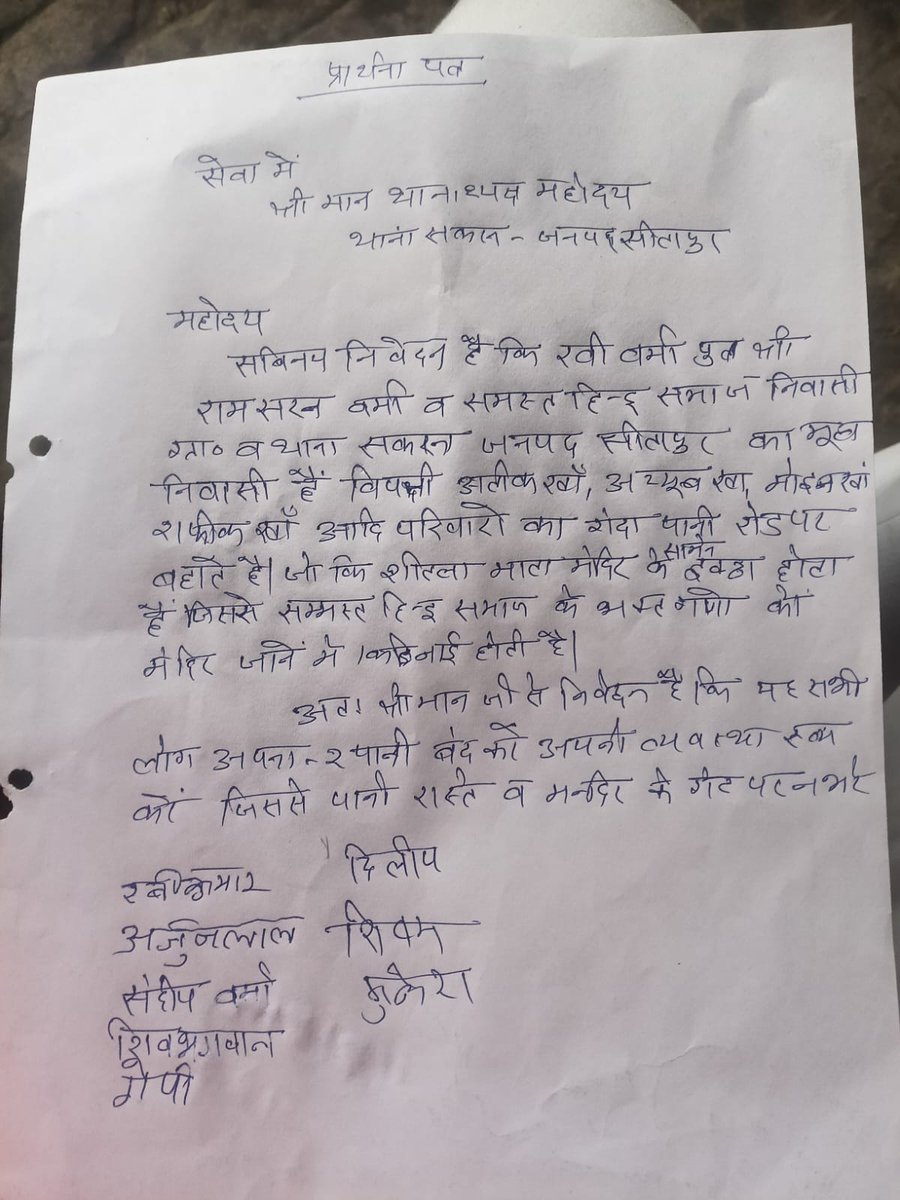 प्रार्थना पत्र
सेवा में
श्री मान थानाध्यक्ष महोदय
थाना सकरन - जनपद सीतापुर
महोदय
सविनय निवेदन है कि रवी वर्मा पुत्र श्री
रामसरन वर्मा व समस्त हिन्दू समाज निवासी
ग्रा० व थाना सकरन जनपद सीतापुर का मूल
निवासी हैं विपक्षी अतीक खाँ, अय्यूब खा, मोइन खां
शफीक खाँ आदि परिवारो का गंदा पानी रोड पर
बहाते है। जो कि शीतला माता मंदिर के सामने इक्ठा होता
हैं जिससे सम्मस्त हिन्दू समाज के भक्तगणो को
मंदिर जानें में कठिनाई होती है।
अतः श्री मान जी से निवेदन है कि यह सभी
लोग अपना-२ पानी बंद करें अपनी व्यवस्था स्वयं
करें जिससे पानी रास्ते व मन्दिर के गेट पर न भरे
रवीकुमार दिलीप
अर्जुनलाल शिवम
संदीप वर्मा मुकेश
शिवभगवान
गोपी